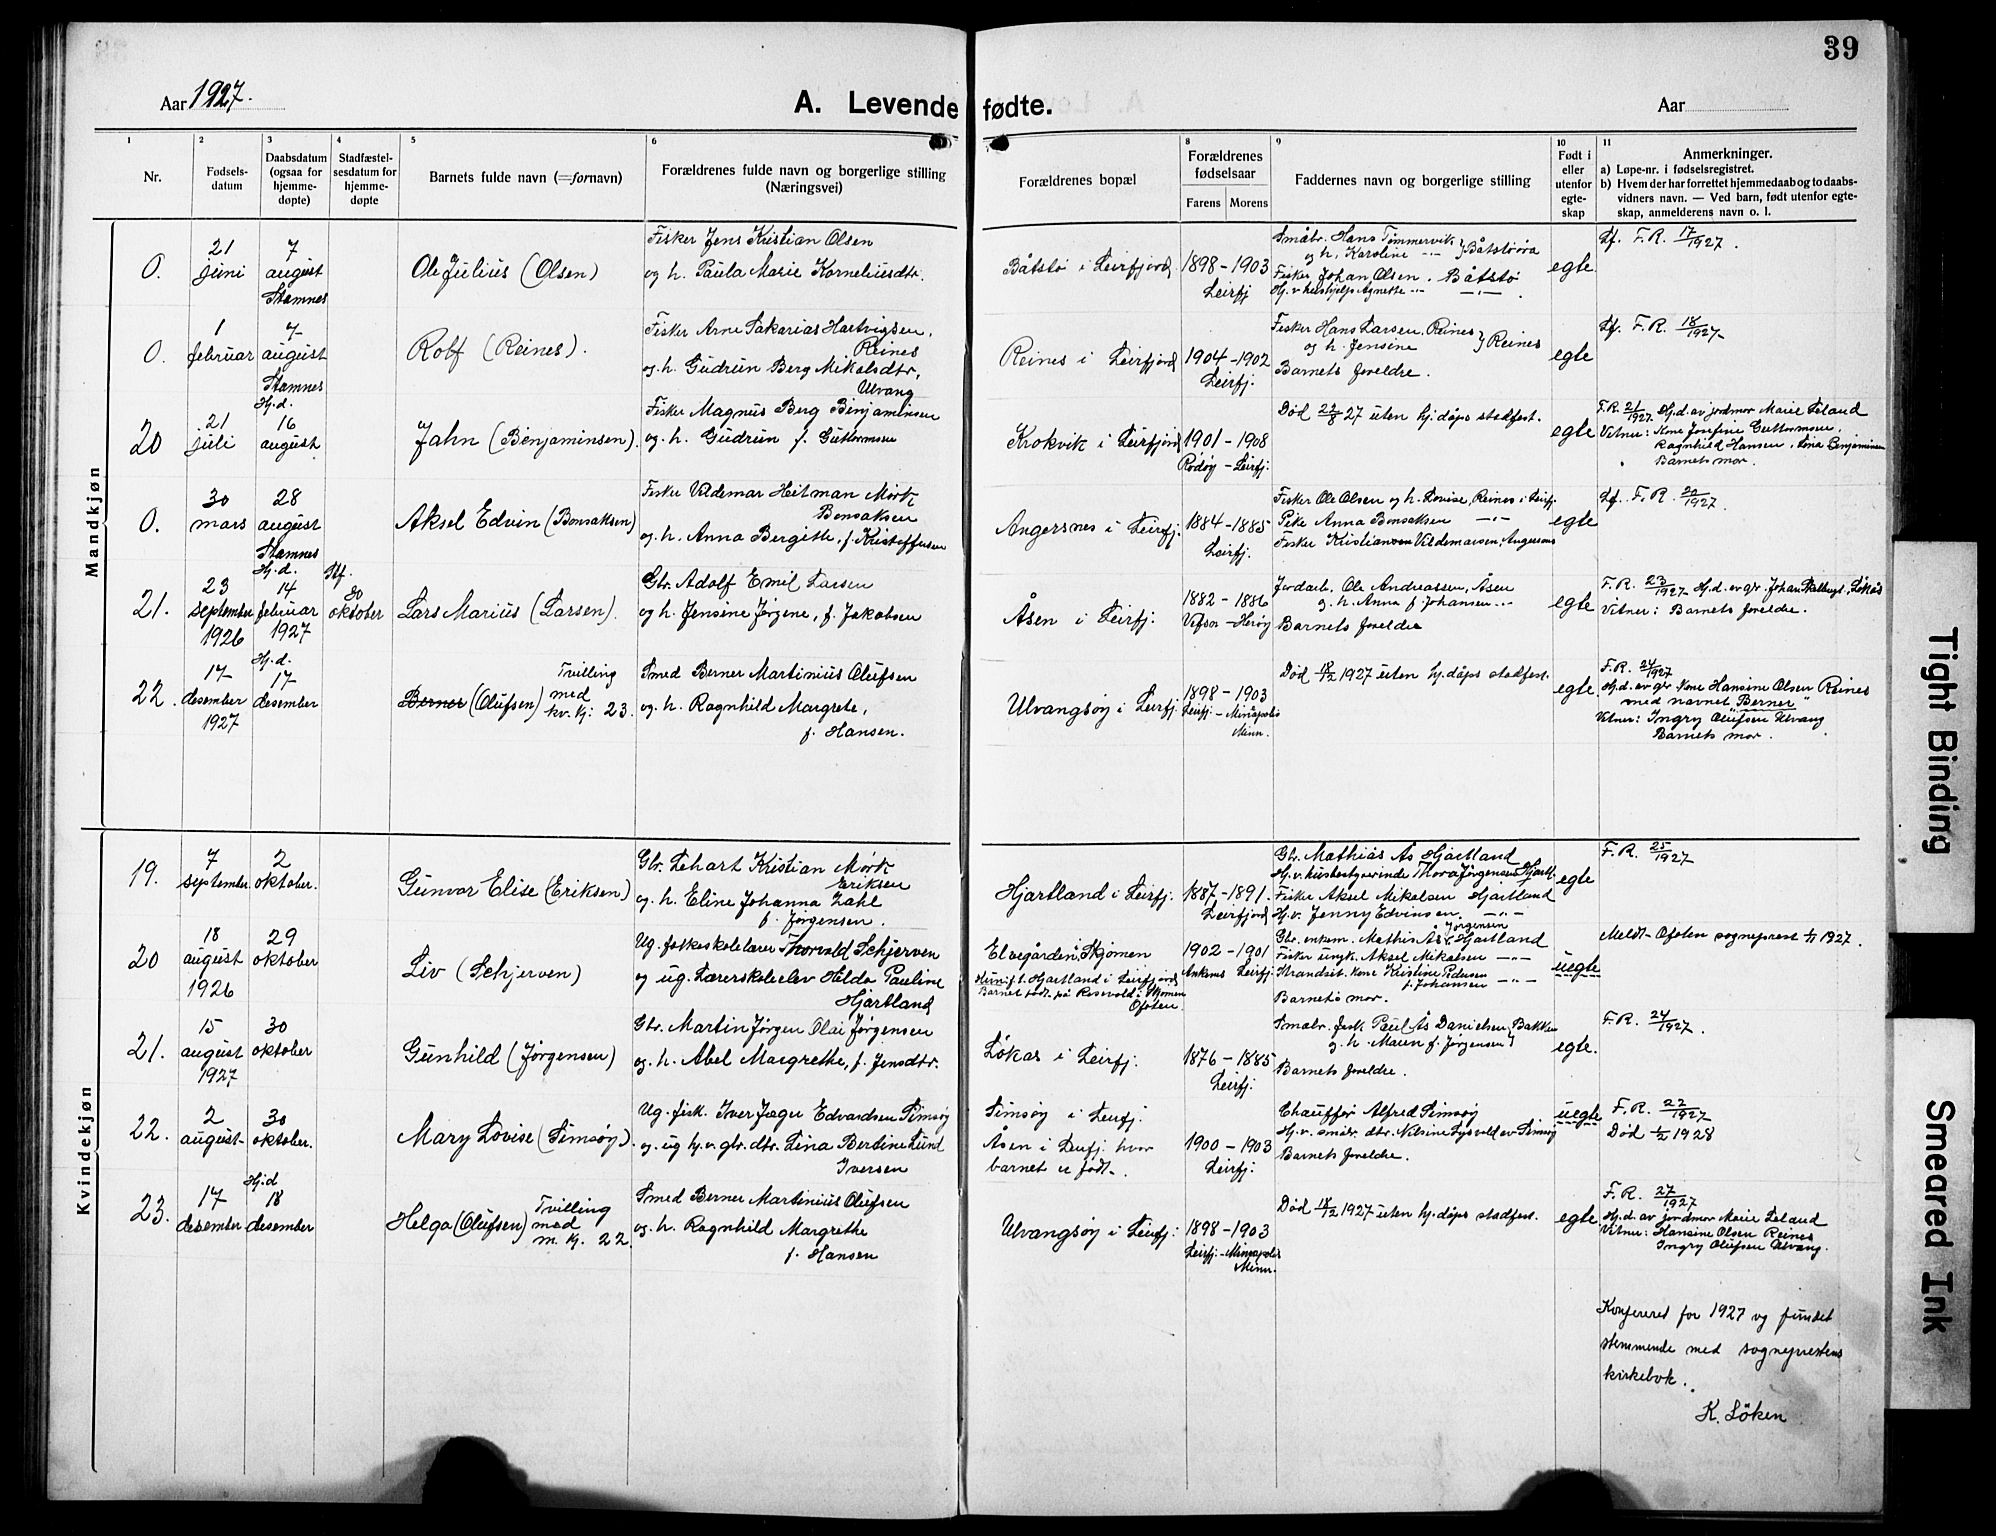 39
Aar 1927.
A. Levende fødte.
Aar
1 2 3 4 5 6 8 9 10 11
Nr.
Fødsels-
datum
Daabsdatum
(ogsaa for
hjemme-
døpte)
Stadfæstel-
sesdatum for
hjemme-
døpte
Barnets fulde navn (=fornavn)
Forældrenes fulde navn og borgerlige stilling
(Næringsvei)
Forældrenes bopæl
Forældrenes
fødselsaar
Farens Morens
Faddernes navn og borgerlige stilling
Født i
eller
utenfor
egte-
skap
Anmerkninger.
a) Løpe-nr. i fødselsregistret.
b) Hvem der har forrettet hjemmedaab og to daabs-
vidners navn. — Ved barn, født utenfor egte-
skap, anmelderens navn o. l.
Mandkjøn
0.
21
juni
7
august
Stamnes
Ole Julius (Olsen)
Fisker Jens Kristian Olsen
og h. Paula Marie Korneliusdtr.
Båtstø i Leirfjord
1898 - 1903
Leirfj
Småbr. Hans Tømmervik } Båtstøröa
og h. Karoline -"-
Fisker Johan Olsen. Båtstø
Hj. v. hushjelp Agnette -"- -"-
egte
Df. F. R. 17/1927.
0.
1
februar
7
august
Stamnes
Rolf (Reines).
Fisker Arne Sakarias Hartvigsen,
Reines
og h. Gudrun Berg Mikalsdtr,
Ulvang
Reines i Leirfjord
1904 - 1902
Leirfj:
Fisker Hans Larsen, Reines } Reines
og h. Jensine
Barnets foreldre.
egte
Df. F. R. 18/1927.
20
21
juli
Hj.d.
16
august
Jahn (Benjaminsen).
Fisker Magnus Berg Benjaminsen
og h. Gudrun f. Guttormsen
Krokvik i Leirfjord
1901 - 1908
Rödöy - Leirfj:
Død 22/8 27 uten hj. dåps stadfest.
egte
F.R. 21/1927. Hj.d. av jordmor Marie Leland
Vitner: Kone Josefine Guttormsen,
Ragnhild Hansen, Lina Benjaminsen
Barnets mor.
0.
30
mars
28
august
Stamnes
Aksel Edvin (Bonsaksen)
Fisker Valdemar Heitman Mörk
Bonsaksen
og h. Anna Bergitte, f. Kristoffersen
Angersnes i Leirfj:
1884 - 1885
Leirfj:
Fisker Ole Olsen og h. Lovise, Reines i Leirfj.
Pike Anna Bonsaksen -"-
Fisker Kristian Valdemarsen, Angersnes
egte
Df. F. R. 20/1927.
21.
23
september
1926
Hj.d.
14
februar
1927
Stf.
30
oktober
Lars Marius (Larsen).
Gbr. Adolf Emil Larsen
og h. Jensine Jørgine, f. Jakobsen
Åsen i Leirfj:
1882 - 1886
Vefsn - Herøy
Jordarb. Ole Andreassen, Åsen
og h. Anna f. Johansen -"-
Barnets foreldre
egte
F. R. 23/1927. Hj.d. av gbr. Johan Løkås
Vitner: Barnets foreldre.
22.
17
desember
1927
Hj.d.
17
desember
Berner (Olufsen)
Tvilling
med
kv. kj: 23.
Smed Berner Martinius Olufsen
og h. Ragnhild Margrete,
f. Hansen.
Ulvangsøy i Leirfj:
1898 - 1903
Leirfj: - Minapolis
Minn.
Død 18/12 1927 uten hj. dåps stadfest.
egte
F. R. 24/1927
Hj.d. av gbr. kone Hansine Olsen Reines
med navnet "Berner"
Vitner: Ingry Olufsen Ulvang
Barnets mor.
Kvindekjøn
19.
7
september
2
oktober.
Gunvor Elise (Eriksen)
Gbr. Lehart Kristian Mørk
Eriksen
og h. Eline Johanna Zahl
f. Jørgensen.
Hjartland i Leirfj:
1887 - 1891.
Leirfjord
Gb. Mathias Ås Hjartland
Hj. v. husbestyrerinde Thora Jørgensen, Hjartl.
Fisker Aksel Mikalsen Hjartland
Hj.v. Jenny Edvinsen. -"-
egte
F. R. 25/1927
20
18
august
1926
29
oktober
Liv (Schjerven)
Ug. folkeskolelærer Thorvald Schjerven
og ug. Lærerskoleelev Helda Pauline
Hjartland
Elvegården, Skjomen
Hun: f. t. Hjartland i Leirfjord
Barnet født på Rosevold i Skjomen
Ofoten
1902 - 1901
Ankenes Leirfj:
Gbr. enkem. Mathis Ås Jørgensen Hjartland
Fisker ungk. Aksel Mikalsen -"-
Strandsit. kone Kristine Pedersen
f. Johansen -"-
Barnets mor.
uegte
Meldt Ofoten sogneprest 4/11 1927.
21.
15
august
1927
30
oktober
Gunhild (Jørgensen)
Gbr. Martin Jørgen Olai Jørgensen
og h. Abel Margrethe, f. Jensdtr.
Løkås i Leirfj:
1876 - 1885
Leirfj:
Småbr. fisk. Paul Ås Danielsen, Bakken
og h. Maren f. Jørgensen
Barnets foreldre.
egte.
F. R. 24/1927.
22.
2
august
30
oktober.
Mary Lovise (Simsøy).
Ug. fisk. Iver Jæger Edvardsen Simsøy
og ug. hj.v. gbr. dtr. Lina Berdine Lund
Iversen
Simsøy i Leirfj.
Åsen i Leirfj: hvor
barnet er født.
1900 - 1903
Leirfj:
Chauffør Alfred Simsøy
Hj.v. småbr. dtr. Nilsine Sysvold av Simsøy
Barnets foreldre.
uegte
F. R. 22/1927
Død 1/2 1928
23.
17
desember
Hj.d
18
desember
Helga (Olufsen)
Tvilling
med
m. kj. 22.
Smed Berner Martinius Olufsen
og h. Ragnhild Margrethe
f. Hansen
Ulvangsøy i Leirfj:
1898 - 1903
Leirfj: - Minapolis
Minn.
Død 18/12 1927 uten hj. dåps stadfest.
egte
F. R. 27/1927
Hj.d. av jordmor Marie Leland
Vitner: Hansine Olsen Reines
Ingry Olufsen Ulvang.
Konferert for 1927 og fundet
stemmende med sogneprestens
kirkebok.
K. Löken
Tight Binding
Smeared Ink